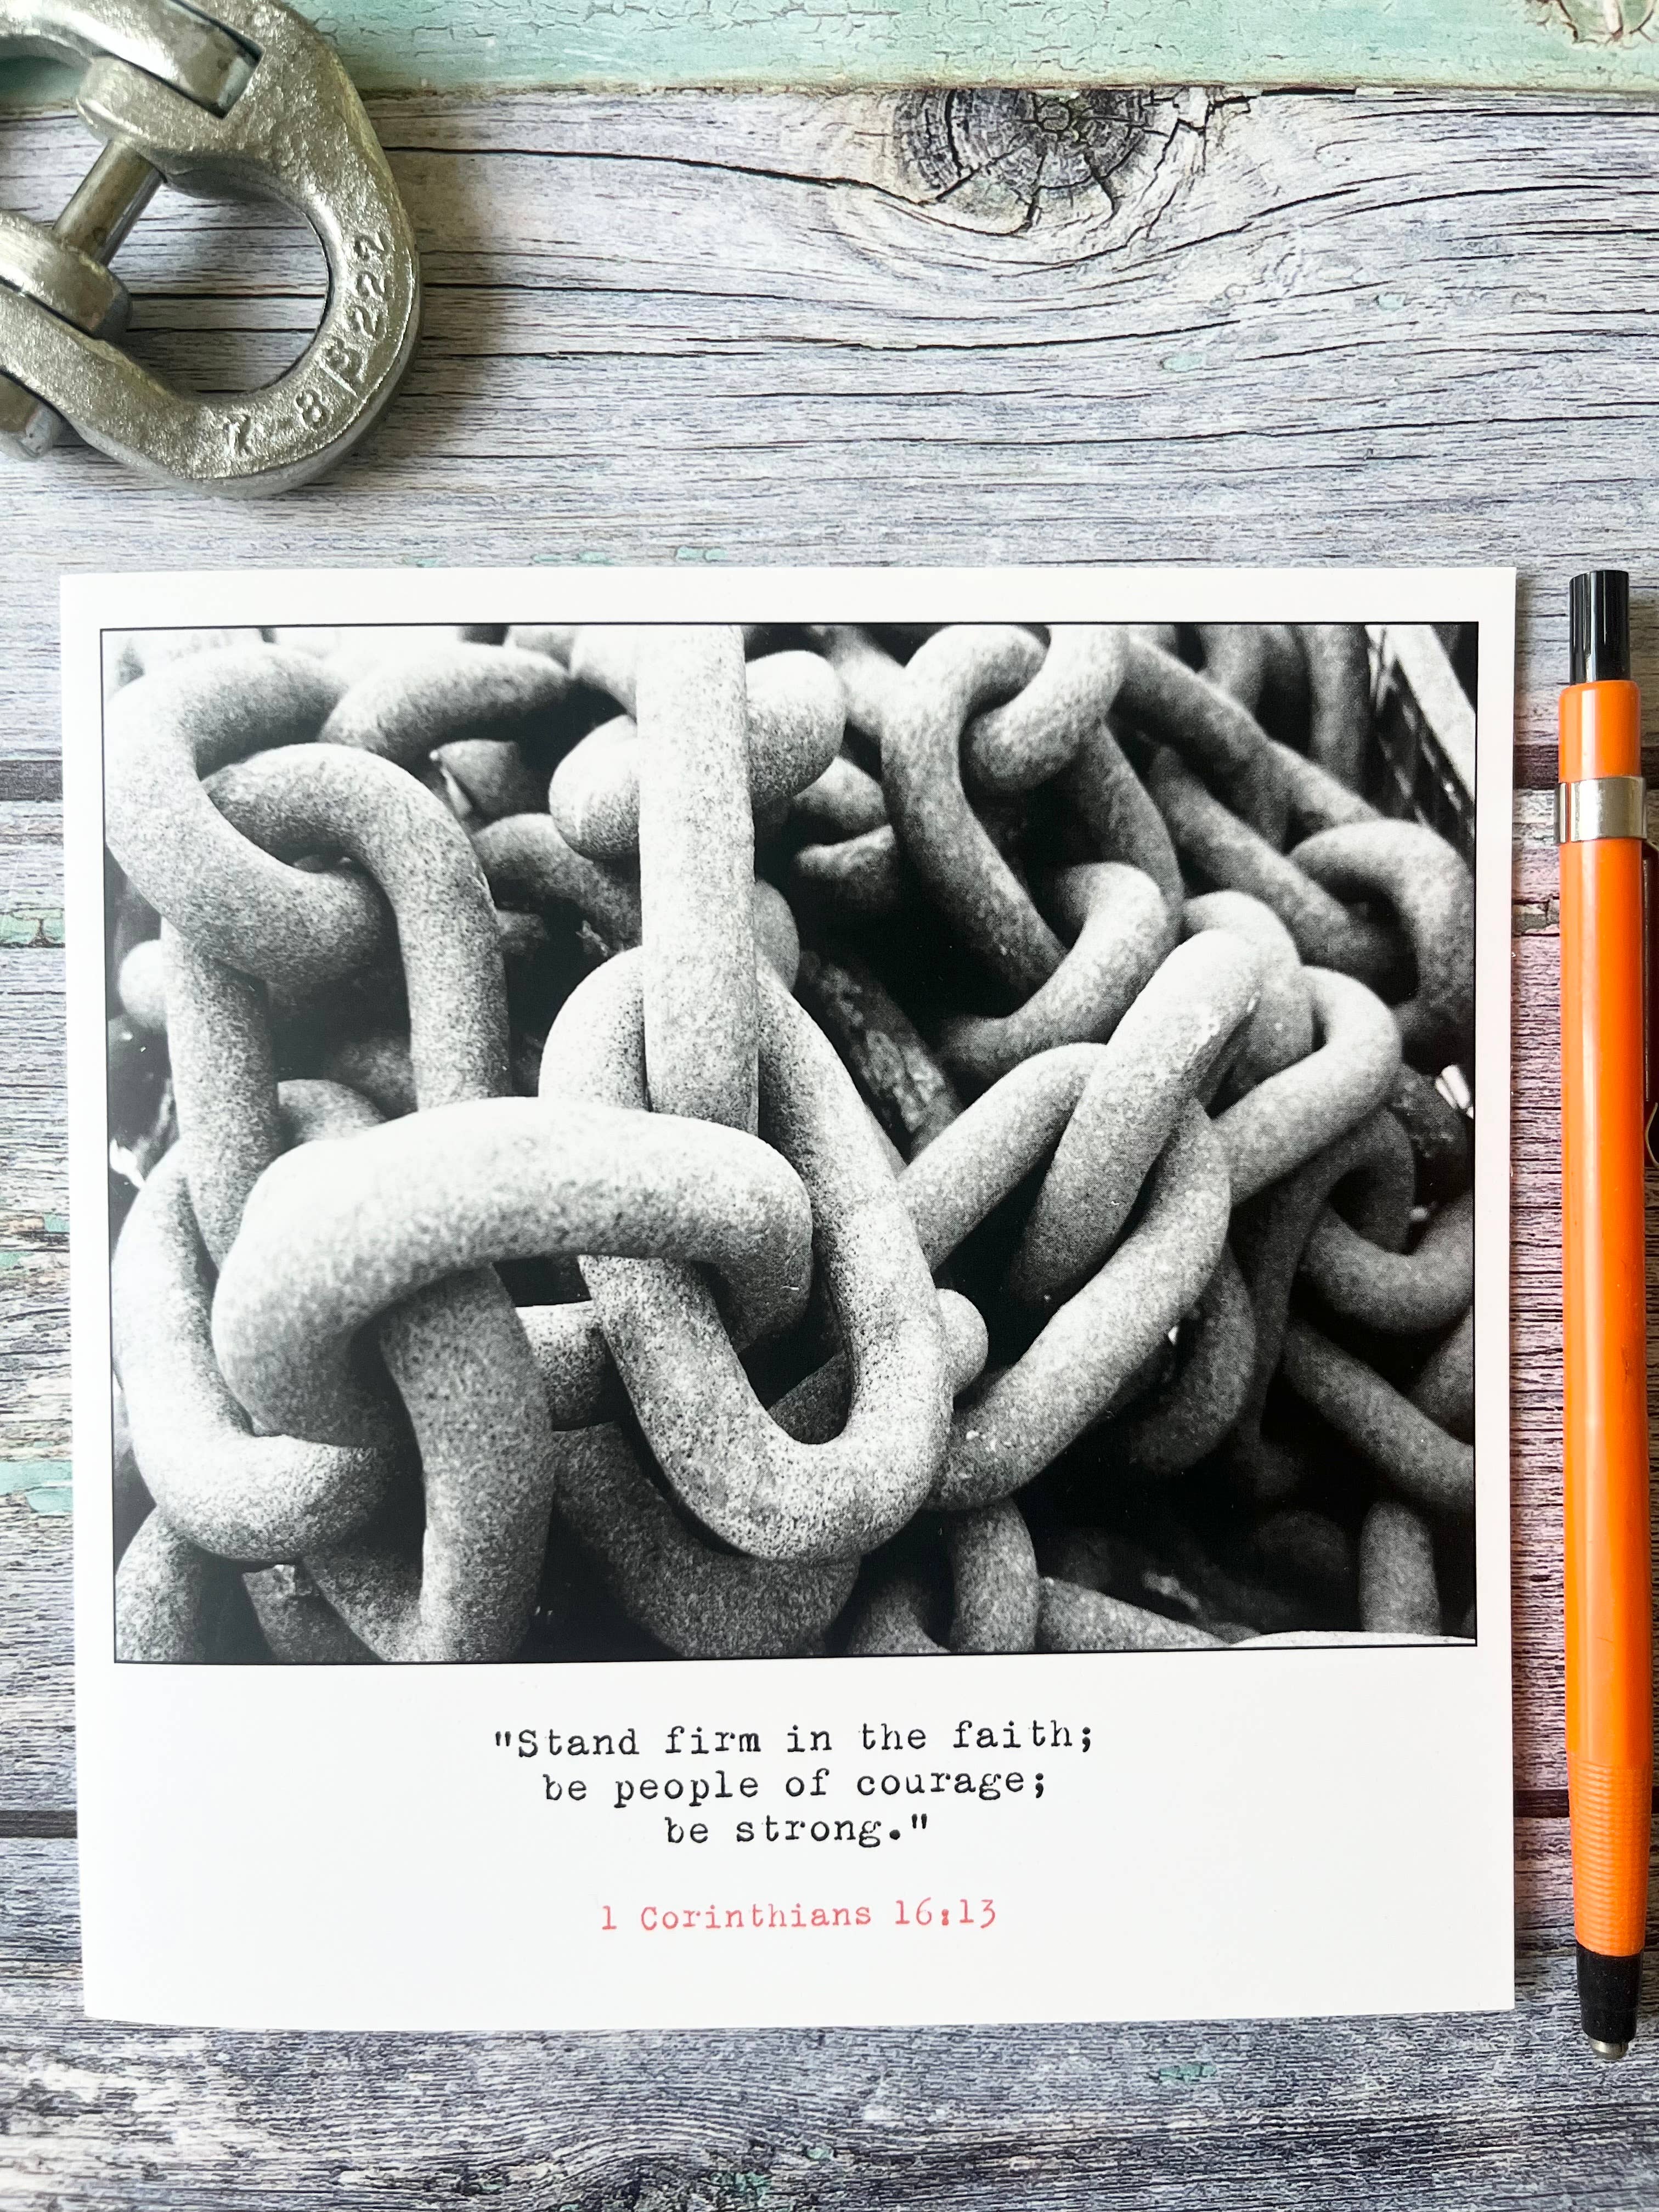 8 S222
"Stand firm in the faith;
be people of courage;
be strong."
1 Corinthians 16:13